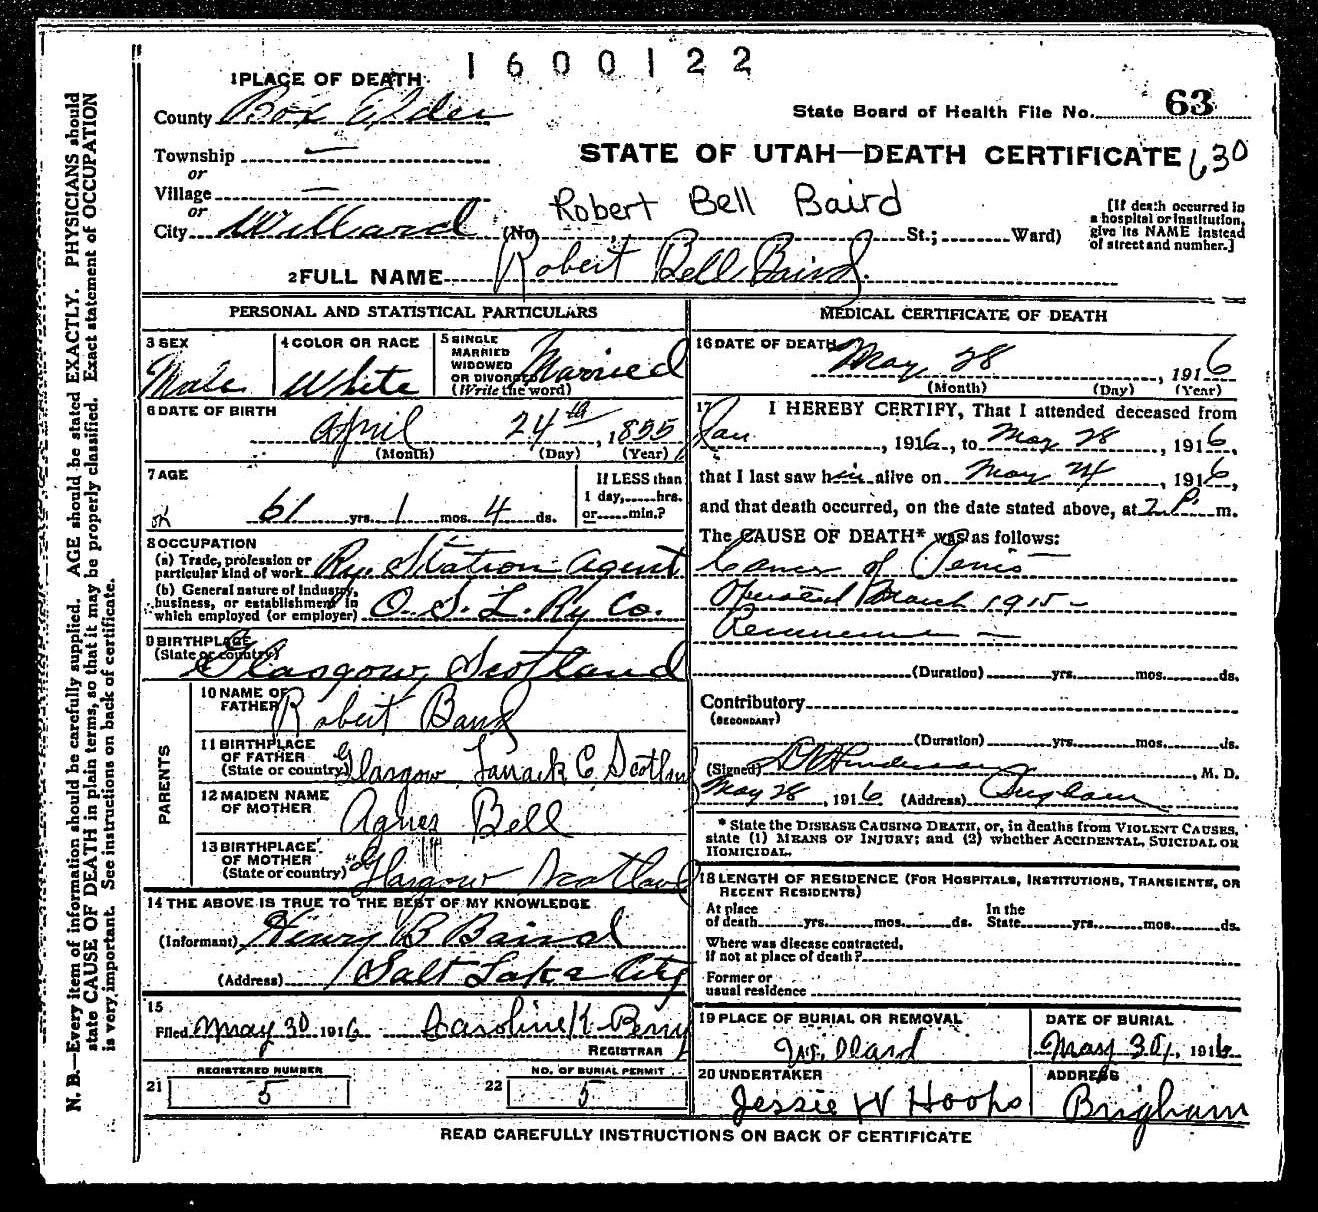 1600122
1 PLACE OF DEATH
County Box Elder
State Board of Health File No. 63
Township —
or
STATE OF UTAH—DEATH CERTIFICATE 630
Village —
or
Robert Bell Baird
City Willard (No. St.; Ward)
[If death occurred in
a hospital or institution,
give its NAME instead
of street and number.]
2 FULL NAME Robert Bell Baird.
PERSONAL AND STATISTICAL PARTICULARS
3 SEX
Male
4 COLOR OR RACE
White
5 SINGLE
MARRIED
WIDOWED
OR DIVORCED
(Write the word)
Married
6 DATE OF BIRTH
April 24th, 1855
(Month) (Day) (Year)
7 AGE
61 yrs. 1 mos. 4 ds.
If LESS than
1 day, hrs.
or min.?
8 OCCUPATION
(a) Trade, profession or
particular kind of work Ry. Station agent
(b) General nature of Industry,
business, or establishment in
which employed (or employer) O. S. L. Ry Co.
9 BIRTHPLACE
(State or country)
Glasgow, Scotland
PARENTS
10 NAME OF
FATHER Robert Baird
11 BIRTHPLACE
OF FATHER
(State or country) Glasgow Lanark C. Scotland
12 MAIDEN NAME
OF MOTHER Agnes Bell
13 BIRTHPLACE
OF MOTHER
(State or country) Glasgow Scotland
14 THE ABOVE IS TRUE TO THE BEST OF MY KNOWLEDGE
(Informant) Henry B Baird
(Address) Salt Lake City
15
Filed May 30 1916 Caroline K. Berry
REGISTRAR
21 REGISTERED NUMBER
5
22 NO. OF BURIAL PERMIT
5
MEDICAL CERTIFICATE OF DEATH
16 DATE OF DEATH
May 28, 1916
(Month) (Day) (Year)
17 I HEREBY CERTIFY, That I attended deceased from
Jan. , 1916, to May 28, 1916,
that I last saw him alive on May 24, 1916,
and that death occurred, on the date stated above, at 2 P. m.
The CAUSE OF DEATH* was as follows:
Cancer of Penis —
Operated March 1915 –
Recurrence —
(Duration) yrs. mos. ds.
Contributory
(SECONDARY)
(Duration) yrs. mos. ds.
(Signed) Henderson, M. D.
May 28, 1916 (Address) Brigham
* State the DISEASE CAUSING DEATH, or, in deaths from VIOLENT CAUSES,
state (1) MEANS OF INJURY; and (2) whether ACCIDENTAL, SUICIDAL OR
HOMICIDAL.
18 LENGTH OF RESIDENCE (FOR HOSPITALS, INSTITUTIONS, TRANSIENTS, OR
RECENT RESIDENTS)
At place
of death yrs. mos. ds.
In the
State yrs. mos. ds.
Where was disease contracted,
if not at place of death?
Former or
usual residence
19 PLACE OF BURIAL OR REMOVAL
Willard
DATE OF BURIAL
May 30, 1916
20 UNDERTAKER
Jessie W Hoops
ADDRESS
Brigham
READ CAREFULLY INSTRUCTIONS ON BACK OF CERTIFICATE
N. B.—Every item of information should be carefully supplied. AGE should be stated EXACTLY. PHYSICIANS should
state CAUSE OF DEATH in plain terms, so that it may be properly classified. Exact statement of OCCUPATION
is very important. See instructions on back of certificate.